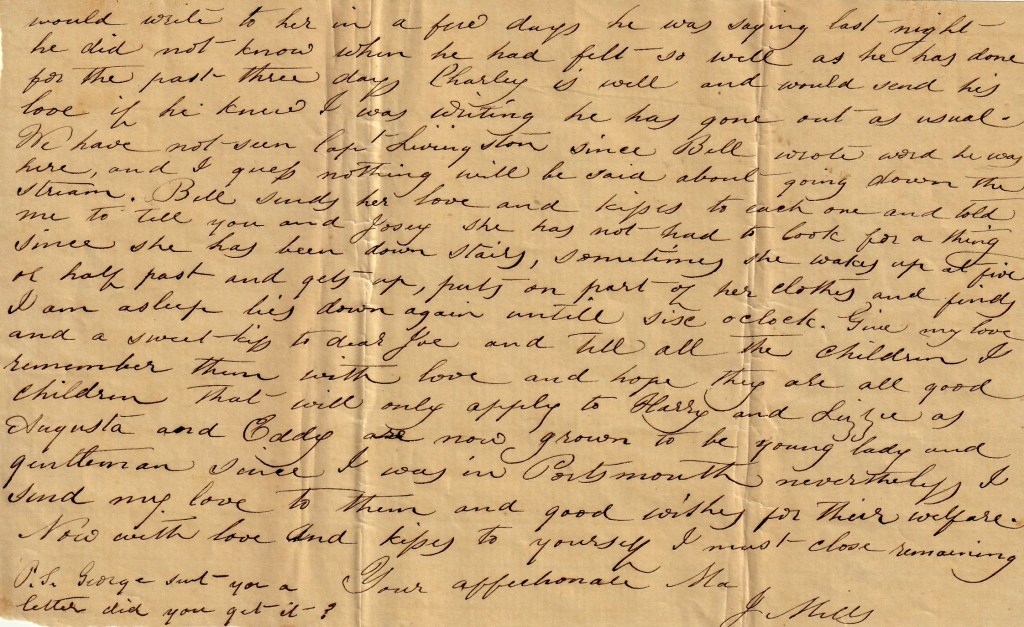 would write to her in a few days he was saying last night
he did not know when he had felt so well as he has done
for the past three days Charley is well and would send his
love if he knew I was writing he has gone out as usual.
We have not seen Capt Livingston since Bell wrote word he was
here, and I guess nothing will be said about going down the
stream. Bell sends her love and kisses to each one and told
me to tell you and Josey she has not had to look for a thing
since she has been down stairs, sometimes she wakes up at five
or half past and gets up, puts on part of her clothes and finds
I am asleep lies down again untill six oclock. Give my love
and a sweet kiss to dear Joe and tell all the children I
remember them with love and hope they are all good
children that will only apply to Harry and Lizzie as
Augusta and Eddy are now grown to be young lady and
gentleman since I was in Portsmouth nevertheless I
send my love to them and good wishes for their welfare.
Now with love and kisses to yourself I must close remaining
Your affectionate Ma
J Mills
P.S. George sent you a
letter did you get it?